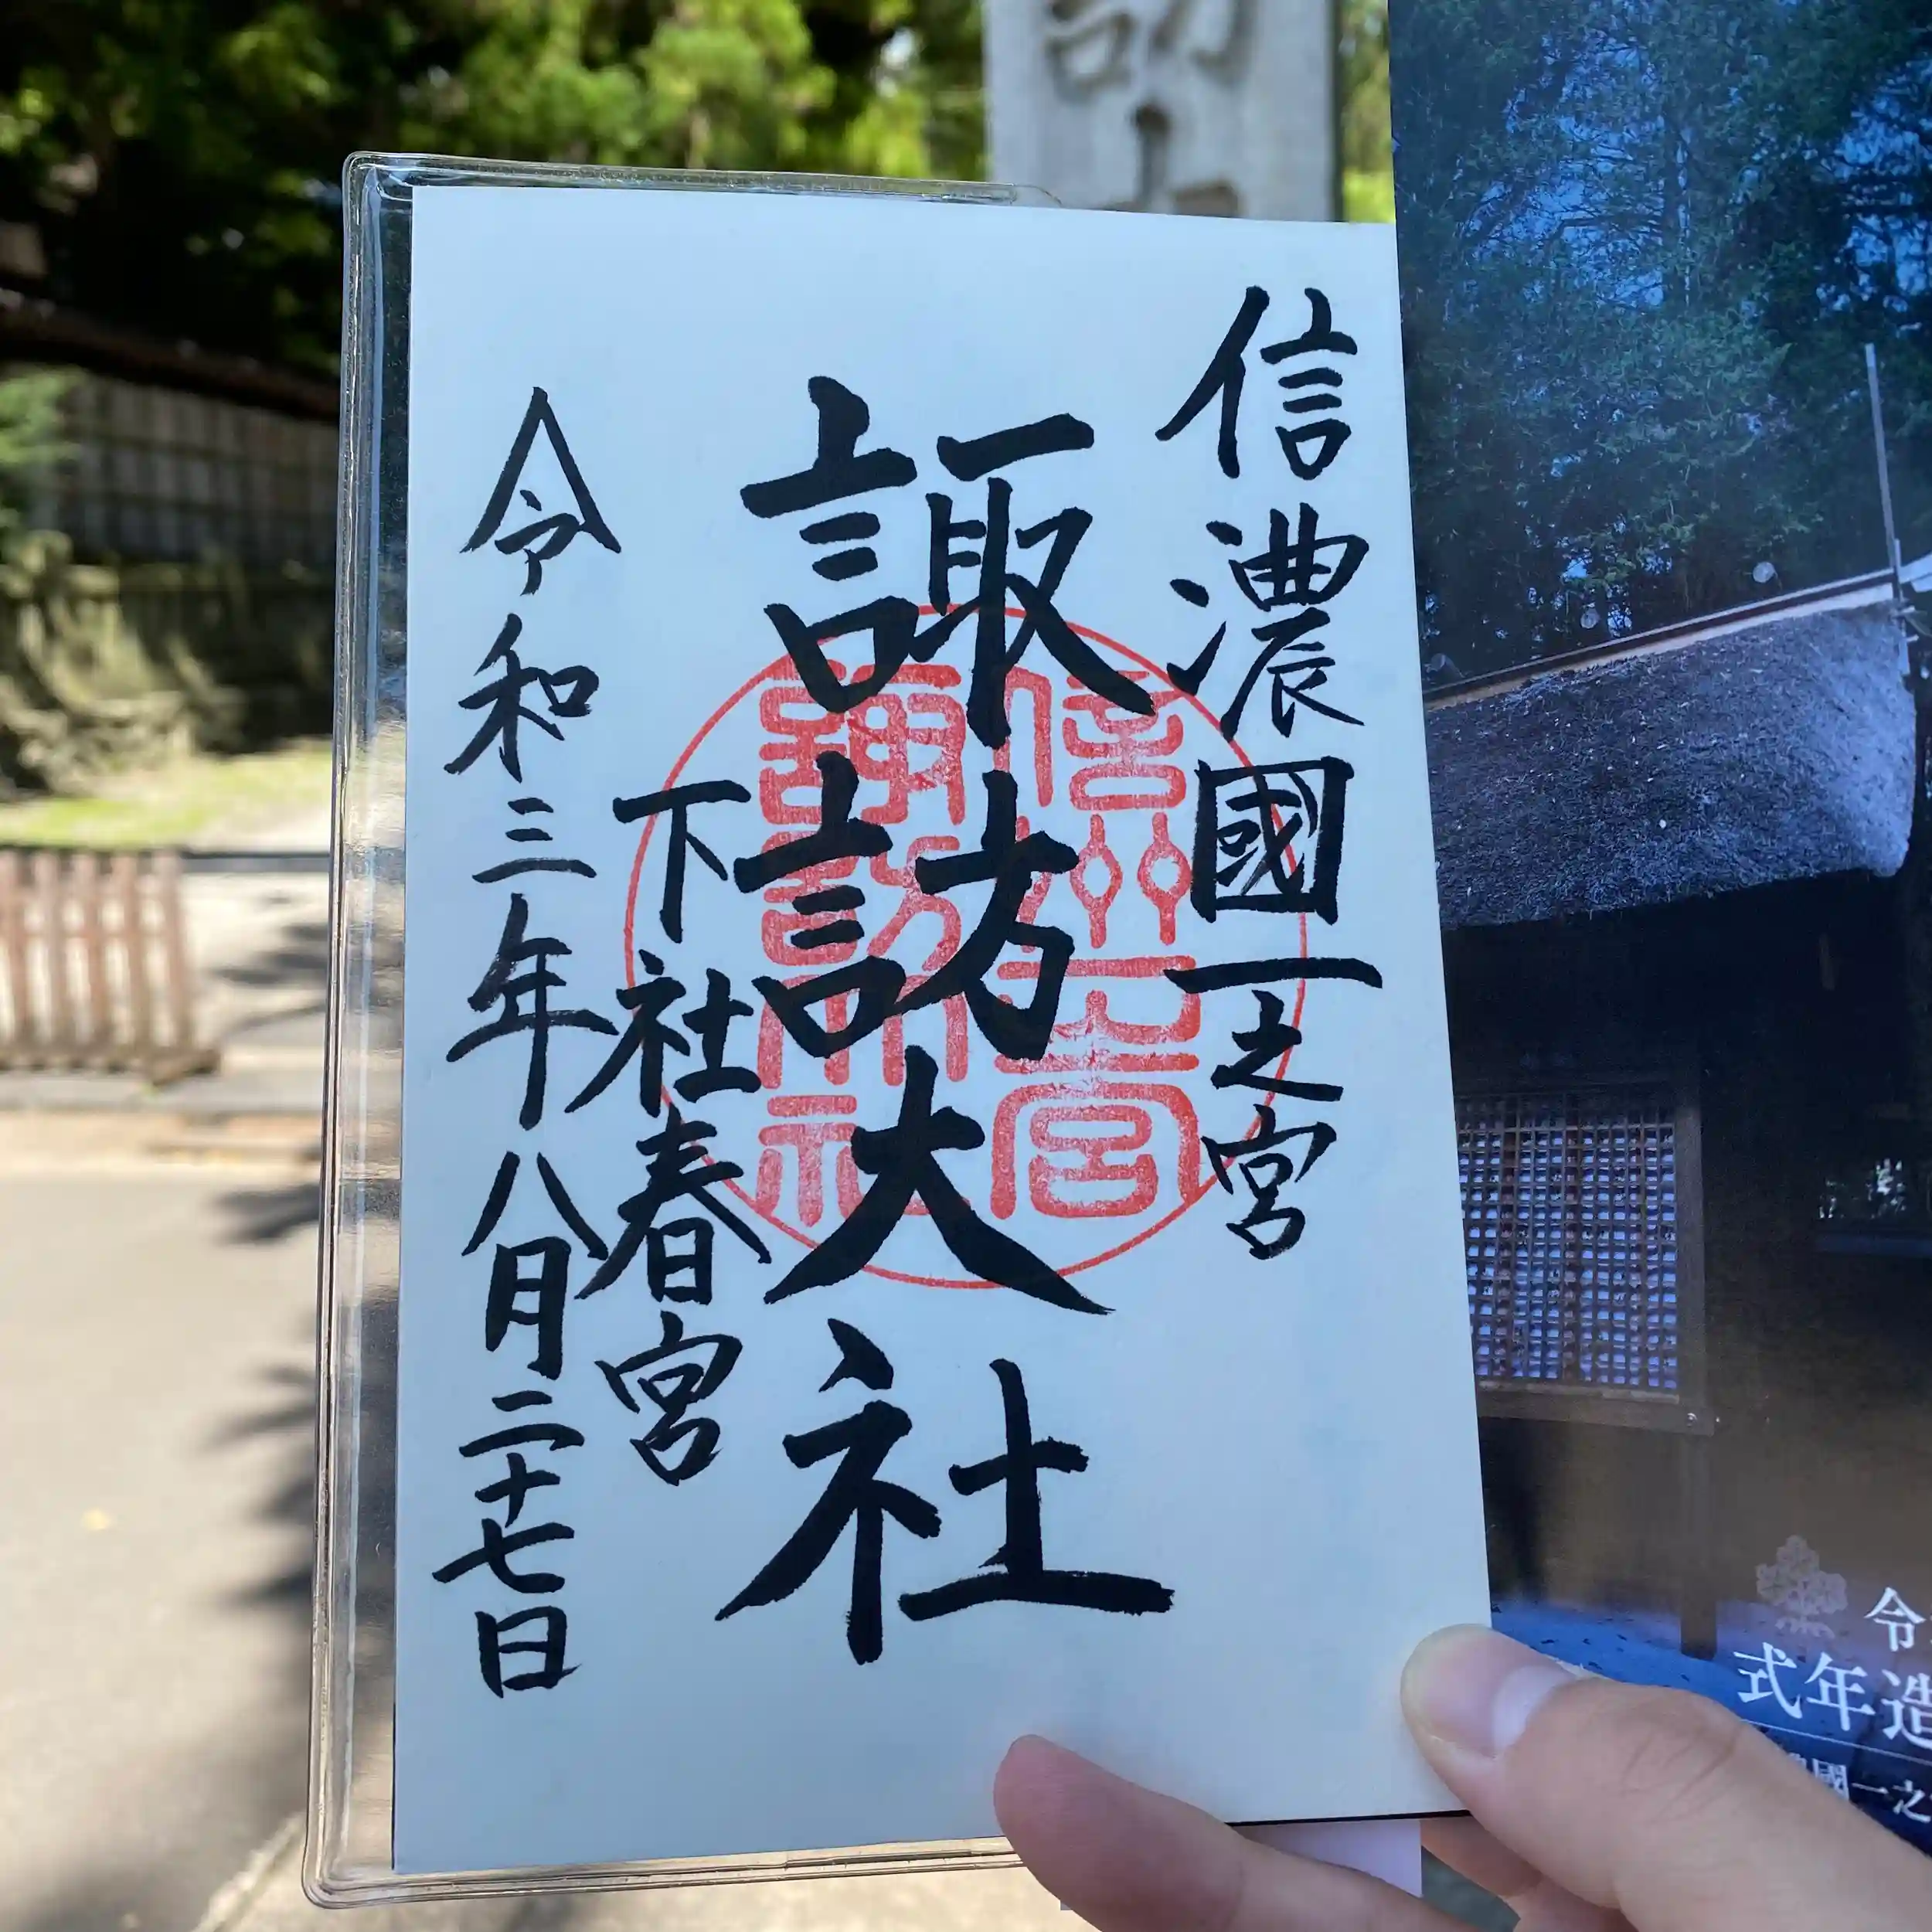 信濃國一之宮
諏訪大社
下社春宮
令和三年八月二十七日
信州一之宮
諏訪大社
令
式年造
國一之